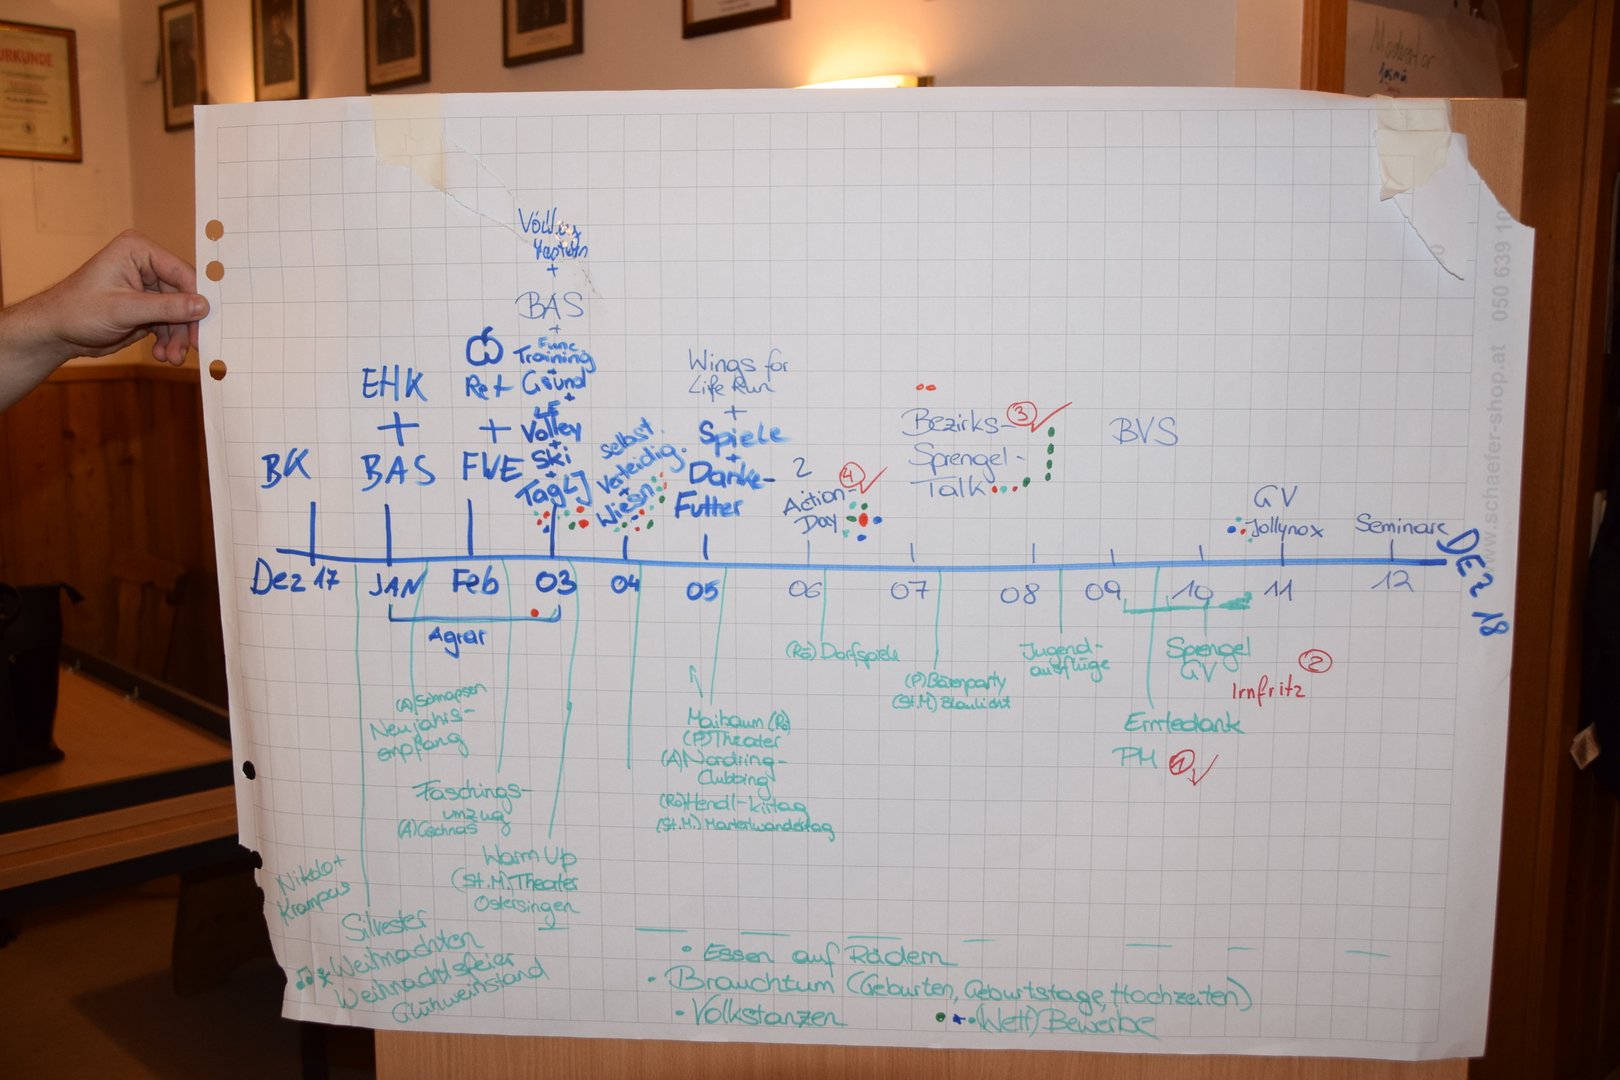 URKUNDE
Moderator
BAS
+
Func
Training
+
Gsund
+
LF
+
Volley
+
Ski
+
TagLJ
EHK
+
BAS
Ret
+
FWE
BK
selbst
verteidig.
+
Wiesn
Wings for
Life Run
+
Spiele
+
Danke-
Futter
2
Action-
Day
4
Bezirks-
Sprengel-
Talk
3
BVS
GV
Jollynox
Seminare
Dez 17
JAN
Feb
03
04
05
06
07
08
09
10
11
12
DEZ 18
Agrar
(A) Schnapsen
Neujahrs-
empfang
Faschings-
umzug
(A) Gschnas
Warm Up
(St.M.) Theater
Ostersingen
Nikolo +
Krampus
Silvester
Weihnachten
Weihnachtsfeier
Glühweinstand
Maibaum (Rö)
(P) Theater
(A) Nordring-
Clubbing
(Rö) Hendl-kirtag
(St.M.) Marterlwandertag
(Rö) Dorfspiele
(P) Bärenparty
(St.M) Blaulicht
Jugend-
ausflüge
Sprengel
GV
Irnfritz
2
Erntedank
PH
1
• Essen auf Rädern
• Brauchtum (Geburten, Geburtstage, Hochzeiten)
• Volkstanzen
• (Wett) Bewerbe
www.schaefer-shop.at 050 639 10